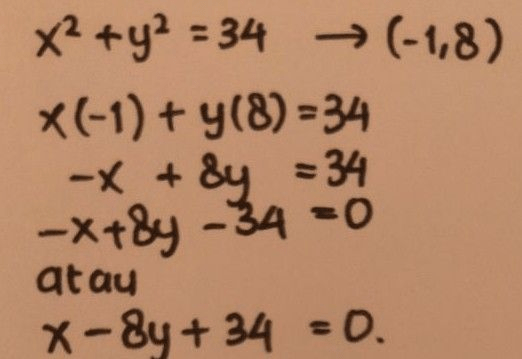 x² + y² = 34 → (-1,8)
x(-1) + y(8) = 34
-x + 8y = 34
-x + 8y - 34 = 0
atau
x - 8y + 34 = 0.